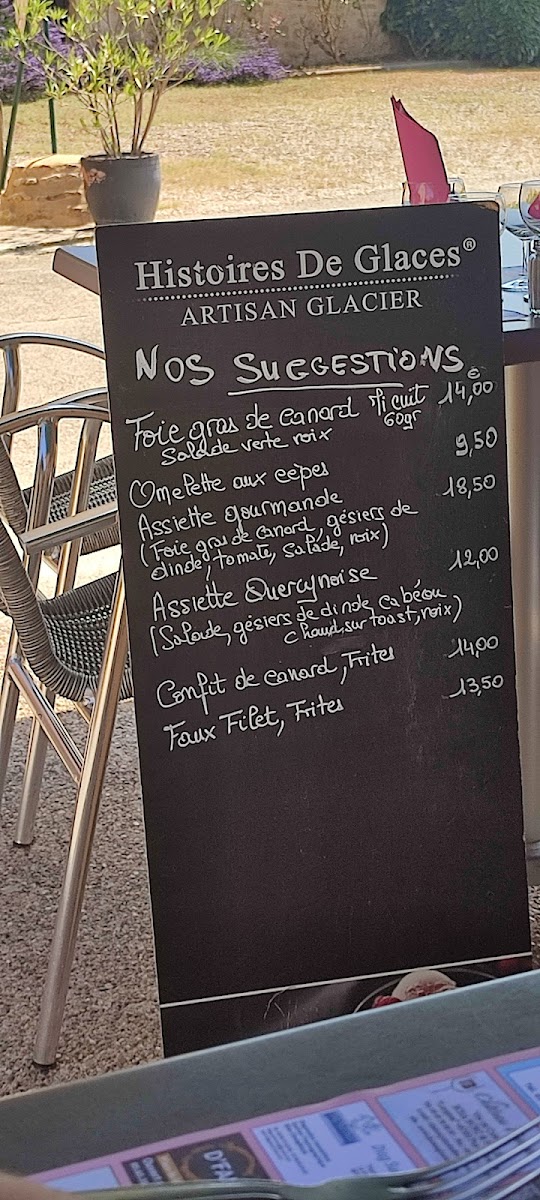 Histoires De Glaces®
ARTISAN GLACIER
NOS SUGGESTIONS
€
Foie gras de Canard Mi cuit 14,00
60gr
Salade verte noix
Omelette aux cèpes 9,50
Assiette gourmande 18,50
(Foie gras de canard, gésiers de
dinde, tomate, salade, noix)
Assiette Quercynoise 12,00
(Salade, gésiers de dinde, Cabécou
Chaud, sur toast, noix)
Confit de canard, Frites 14,00
Faux Filet, Frites 13,50